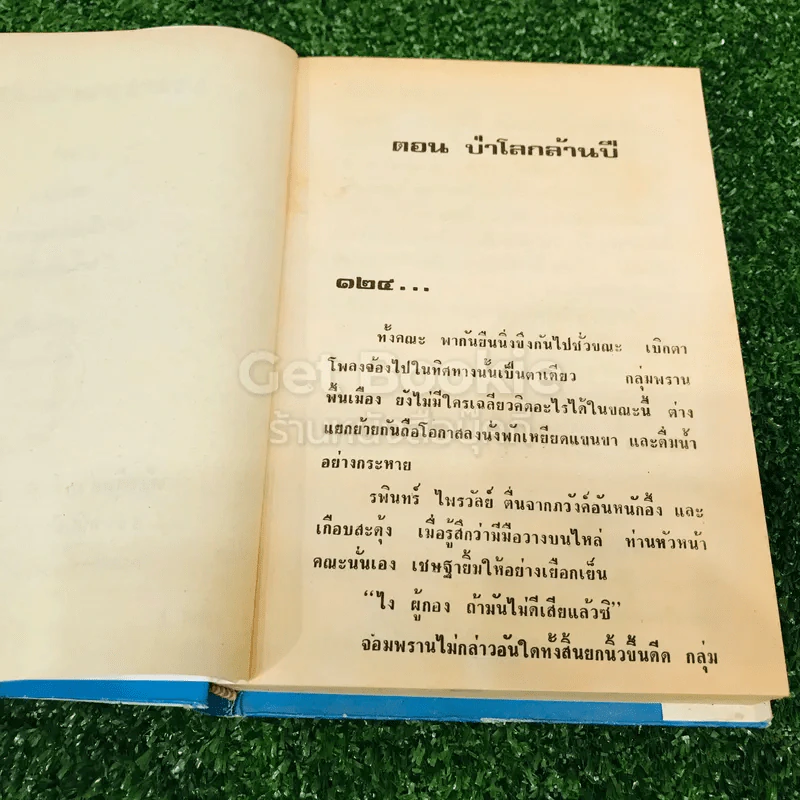 ตอน ป่าโลกล้านปี
๑๒๔...
ทั้งคณะ พากันยืนนิ่งขึงกันไปชั่วขณะ เบิกตา
โพลงจ้องไปในทิศทางนั้นเป็นตาเดียว กลุ่มพราน
พื้นเมือง ยังไม่มีใครเฉลียวคิดอะไรได้ในขณะนี้ ต่าง
แยกย้ายกันถือโอกาสลงนั่งพักเหยียดแขนขา และดื่มน้ำ
อย่างกระหาย
รพินทร์ ไพรวัลย์ ตื่นจากภวังค์อันหนักอึ้ง และ
เกือบสะดุ้ง เมื่อรู้สึกว่ามีมือวางบนไหล่ ท่านหัวหน้า
คณะนั่นเอง เชษฐายิ้มให้อย่างเยือกเย็น
“ไง ผู้กอง ถ้ามันไม่ดีเสียแล้วซิ”
จอมพรานไม่กล่าวอันใดทั้งสิ้นยกนิ้วขึ้นดีด กลุ่ม
Get Bookie
ร้านหนังสือบุ๊คกี้